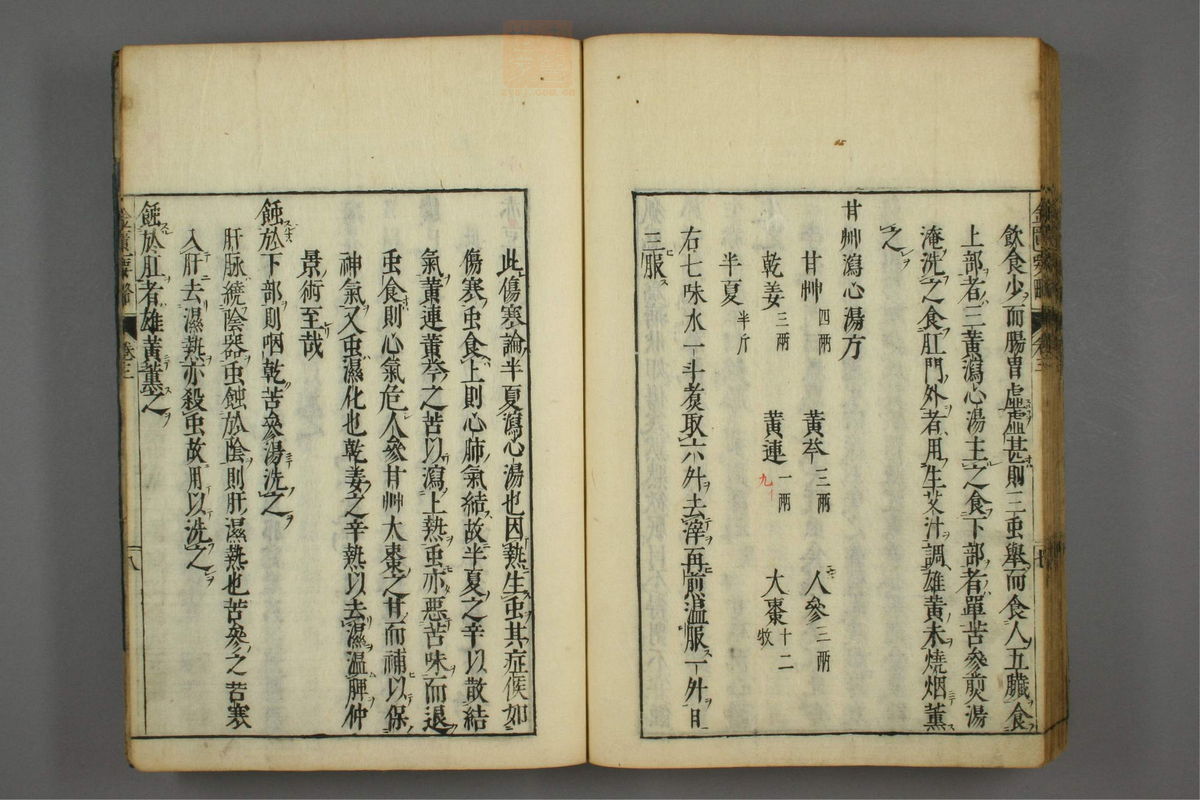 飲食少而腸胃虛虛甚則三虫舉而食人五臟食
上部者三黃瀉心湯主之食下部者單苦參煎湯
淹洗之食肛門外者用生艾汁調雄黃末燒烟薰
之
甘艸瀉心湯方
甘艸四兩 黃芩三兩 人參三兩
乾姜三兩 黃連一兩 大棗十二枚
半夏半斤
右七味水一斗煑取六升去滓再煎溫服一升日
三服
此傷寒論半夏瀉心湯也因熱生虫其症候如
傷寒虫食上則心肺氣結故半夏之辛以散結
氣黃連黃芩之苦以瀉上熱虫亦惡苦味而退
虫食則心氣危人參甘艸大棗之甘而補以保
神氣又虫濕化也乾姜之辛熱以去濕温脾仲
景術至哉
蝕於下部則咽乾苦參湯洗之
肝脉繞陰器虫蝕於陰則肝濕熱也苦參之苦寒
入肝去濕熱亦殺虫故用以洗之
蝕於肛者雄黃薰之
卷三
八